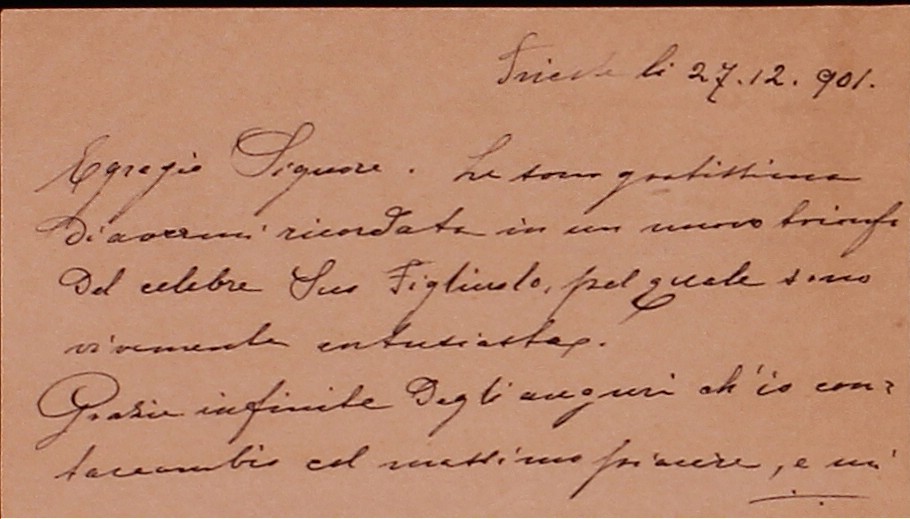 Trieste li 27.12.901.
Egregio Signore. Le sono gratissima
di avermi ricordata in un nuovo trionfo
del celebre Suo Figliuolo, pel quale sono
vivamente entusiasta.
Grazie infinite degli auguri ch'io con=
traccambio col massimo piacere, e mi